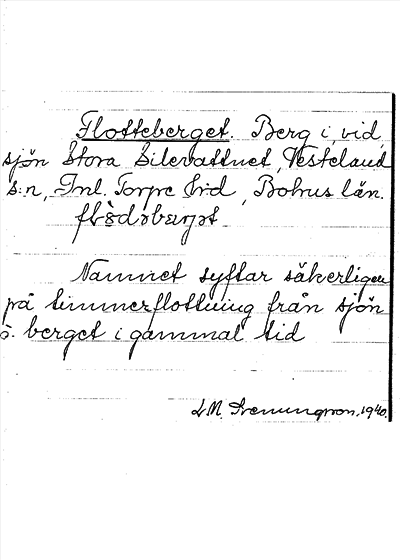 Flotteberget. Berg i, vid
sjön Stora Silevattnet, Vesteland
s:n, Inl. Torpe h:d, Bohus län.
Namnet syftar säkerligen
på timmerflottning från sjön
o. berget i gammal tid
1940.